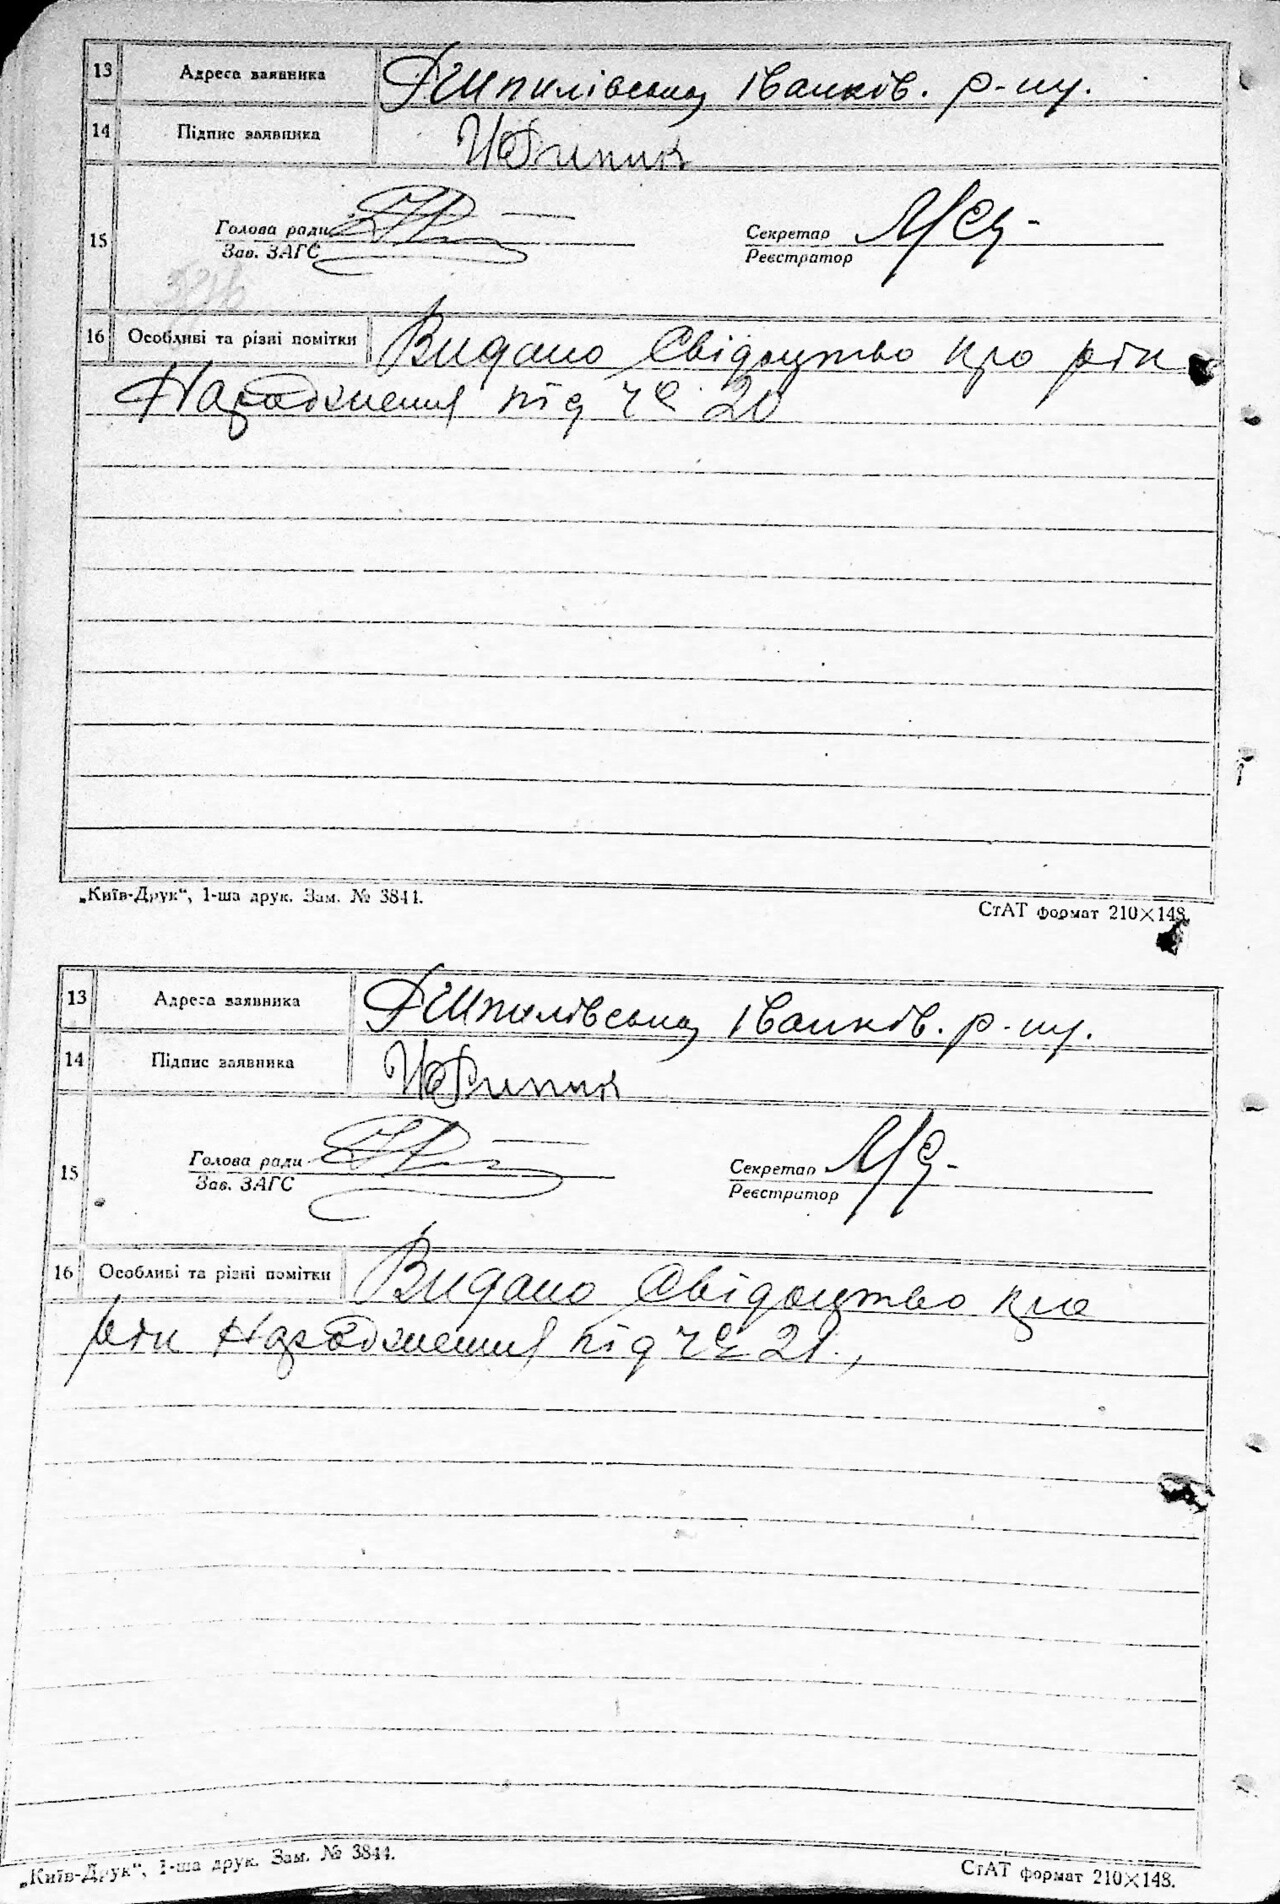 13 Адреса заявника Шпилівська Іванків. р-ну.
14 Підпис заявника
Голова ради Секретар
15
Зав. ЗАГС Реєстратор
16 Особливі та різні помітки Видано Свідоцтво про рік
Народження під №
20
„Київ-Друк“, 1-ша друк. Зам. № 3844.
СтАТ формат 210×148.
13 Адреса заявника Шпилівська Іванків. р-ну.
14 Підпис заявника
Голова ради Секретар
15
Зав. ЗАГС Реєстратор
16 Особливі та різні помітки Видано Свідоцтво про
рік Народження під № 21.,
„Київ-Друк“, 1-ша друк. Зам. № 3844.
СтАТ формат 210×148.